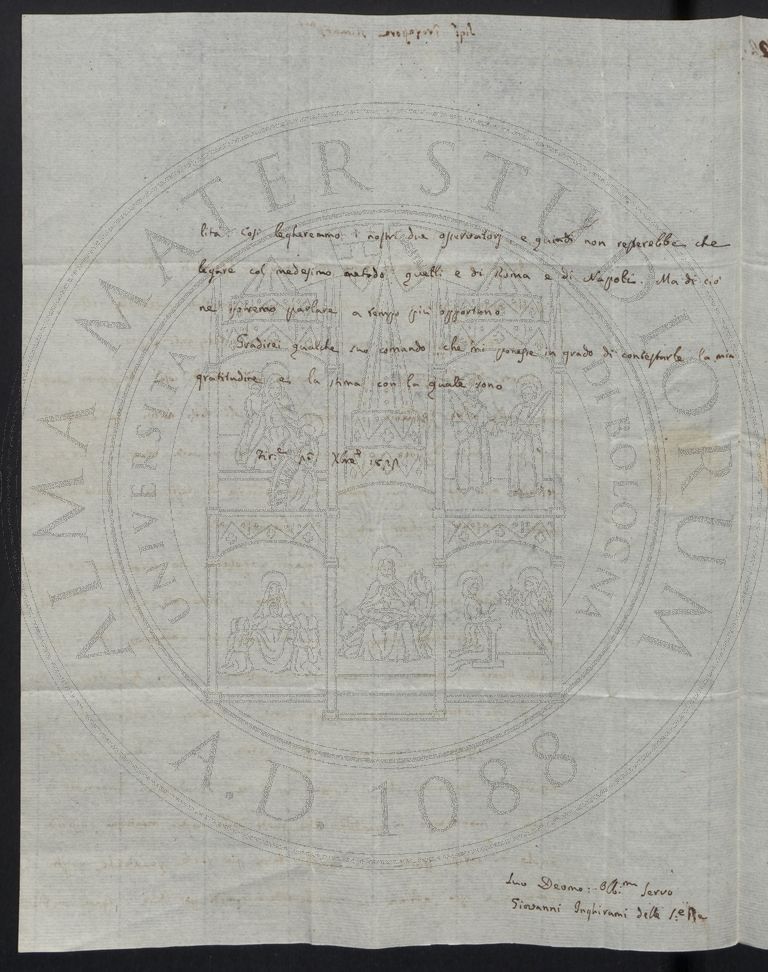 lità. Così legheremmo i nostri due osservatorj, e quindi non resterebbe che
legare col medesimo metodo quelli e di Roma e di Napoli. Ma di ciò
ne potremo parlare a tempo più opportuno.
Gradirei qualche suo comando che mi ponesse in grado di contestarle la mia
gratitudine e la stima con la quale sono
Xbre
Suo Devmo: Obb.mo servo
Giovanni Inghirami delle S.e P.e
ALMA MATER STUDIORUM
UNIVERSITÀ DI BOLOGNA
A.D. 1088